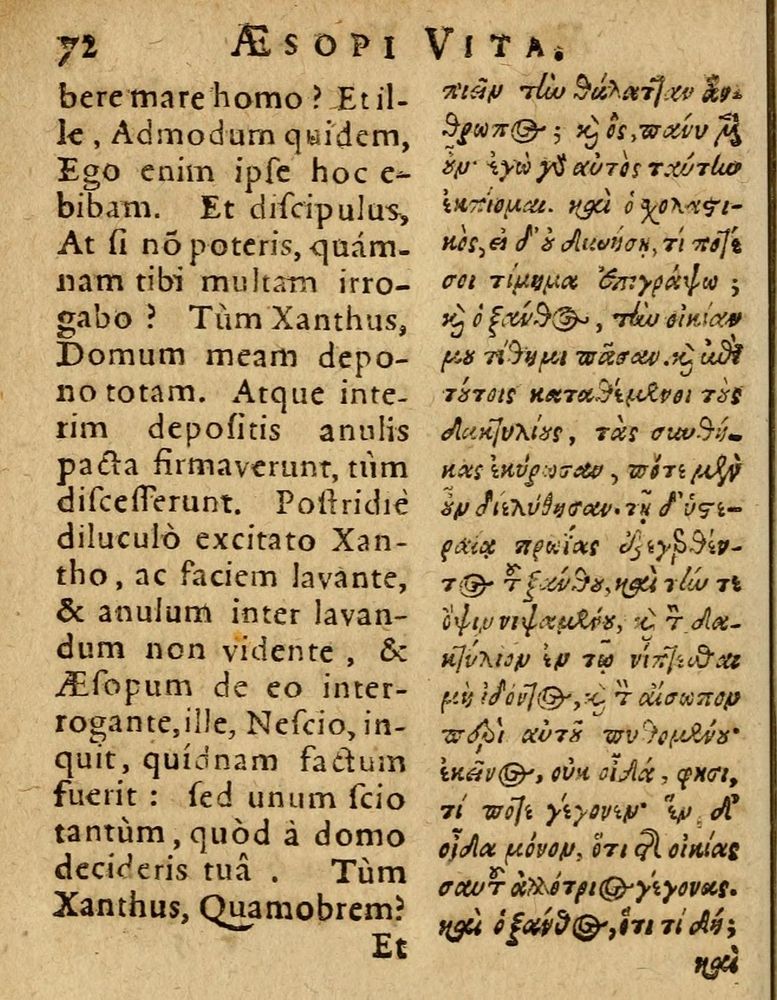 72 ÆSOPI VITA.
bere mare homo? Et il-
le, Admodum quidem,
Ego enim ipſe hoc e-
bibam. Et diſcipulus,
At ſi nõ poteris, quám-
nam tibi multam irro-
gabo? Tùm Xanthus,
Domum meam depo-
no totam. Atque inte-
rim depoſitis anulis
pacta firmaverunt, tùm
diſceſſerunt. Poſtridiè
diluculò excitato Xan-
tho, ac faciem lavante,
& anulum inter lavan-
dum non vidente, &
Æſopum de eo inter-
rogante, ille, Neſcio, in-
quit, quidnam factum
fuerit: ſed unum ſcio
tantùm, quòd à domo
decideris tuâ. Tùm
Xanthus, Quamobrem?
Et
πιεῖν τὴν θάλατταν ἄν-
θρωπος; καὶ ὃς, πάνυ μὲν
οὖν· ἐγὼ γὰρ αὐτὸς ταύτην
ἐκπίομαι. καὶ ὁ χολαστι-
κὸς, εἰ δ' οὐ δυνήσῃ, τί ποτέ
σοι τίμημα ἐπιγράψω;
καὶ ὁ ξάνθος, τὴν οἰκίαν
μου τίθημι πᾶσαν. καὶ ἐπὶ
τούτοις καταθέμενοι τοὺς
δακτυλίους, τὰς συνθή-
κας ἐκύρωσαν, πότε μὲν
οὖν διελύθησαν. τῇ δ' ὑστε-
ραίᾳ πρωΐας ἐξεγερθέν-
τος τοῦ ξάνθου, καὶ τήν τε
ὄψιν νιψαμένου, καὶ τὸν δα-
κτύλιον ἐν τῷ νίπτεσθαι
μὴ ἰδόντος, καὶ τὸν αἴσωπον
περὶ αὐτοῦ πυθομένου·
ἐκεῖνος, οὐκ οἶδά, φησι,
τί ποτε γέγονεν· ἓν δ'
οἶδα μόνον, ὅτι τῆς οἰκίας
σαυτοῦ ἀλλότριος γέγονας.
καὶ ὁ ξάνθος, ὅτι τί δή;
καὶ